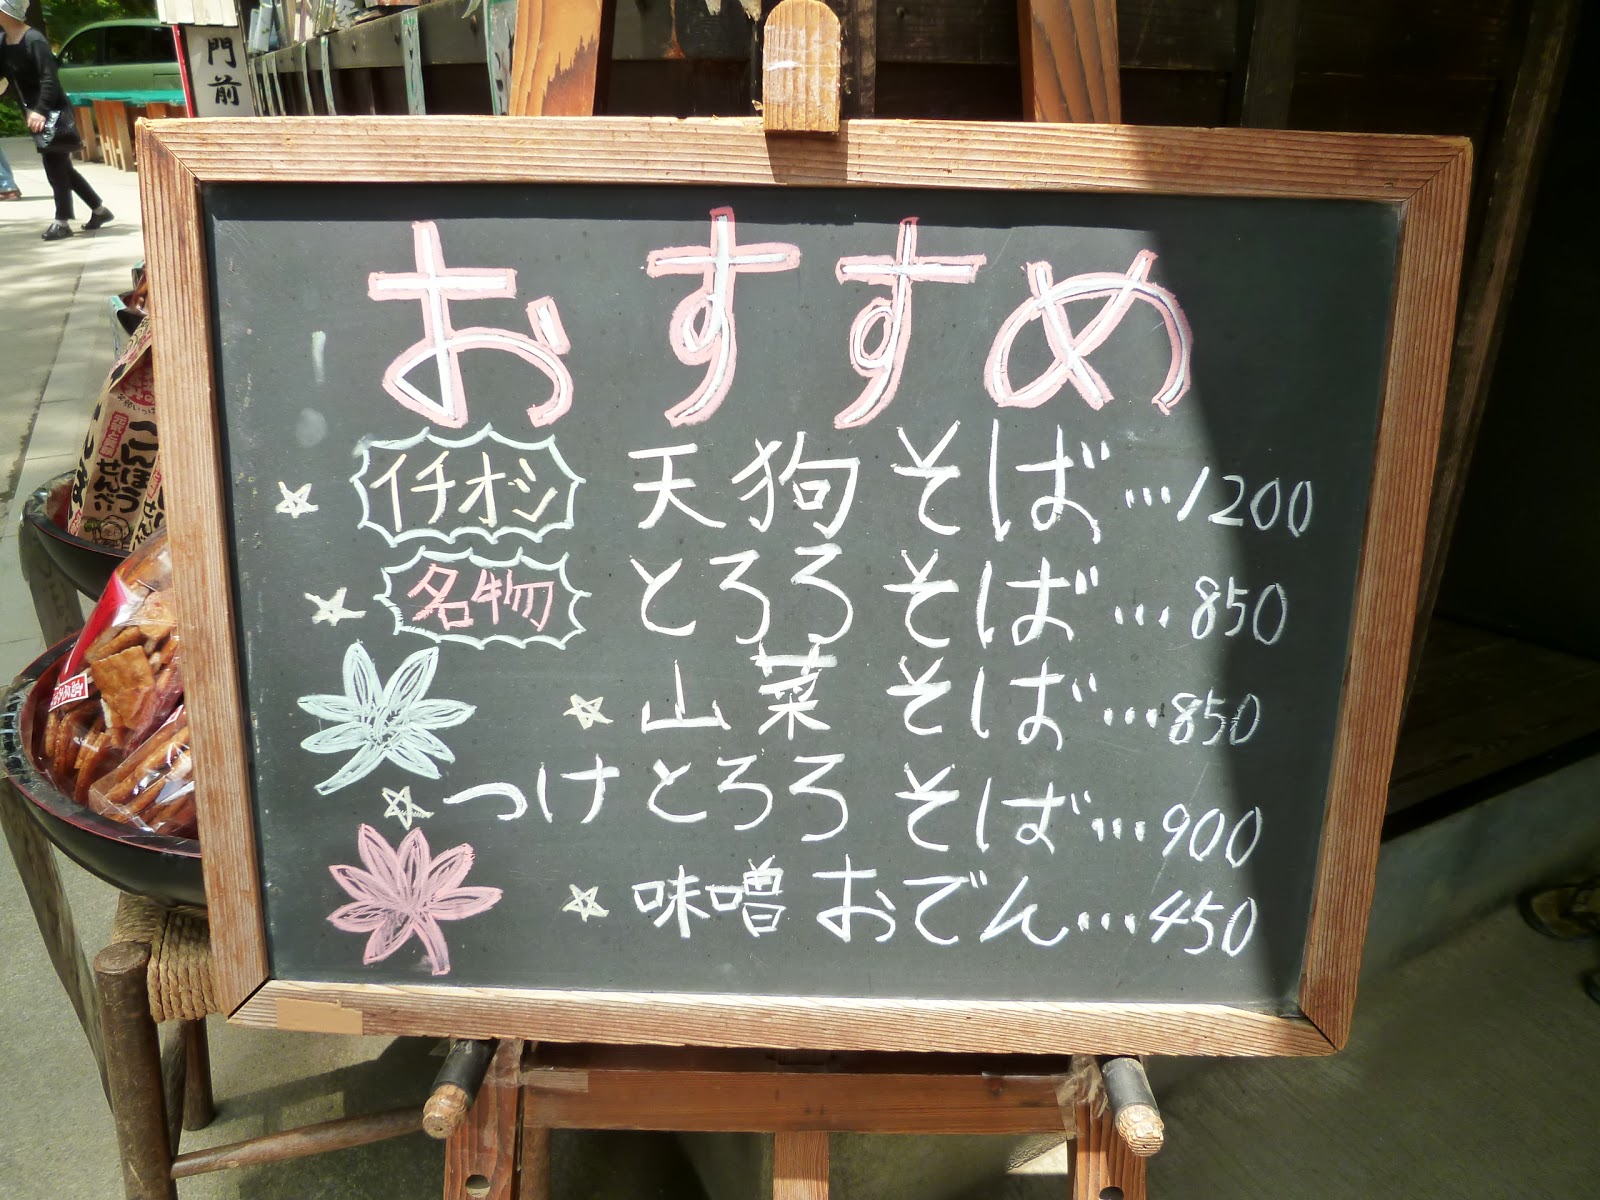 門前
おすすめ
イチオシ 天狗そば…1200
名物 とろろそば…850
山菜そば…850
つけとろろそば…900
味噌おでん…450
ごぼう
せんべい